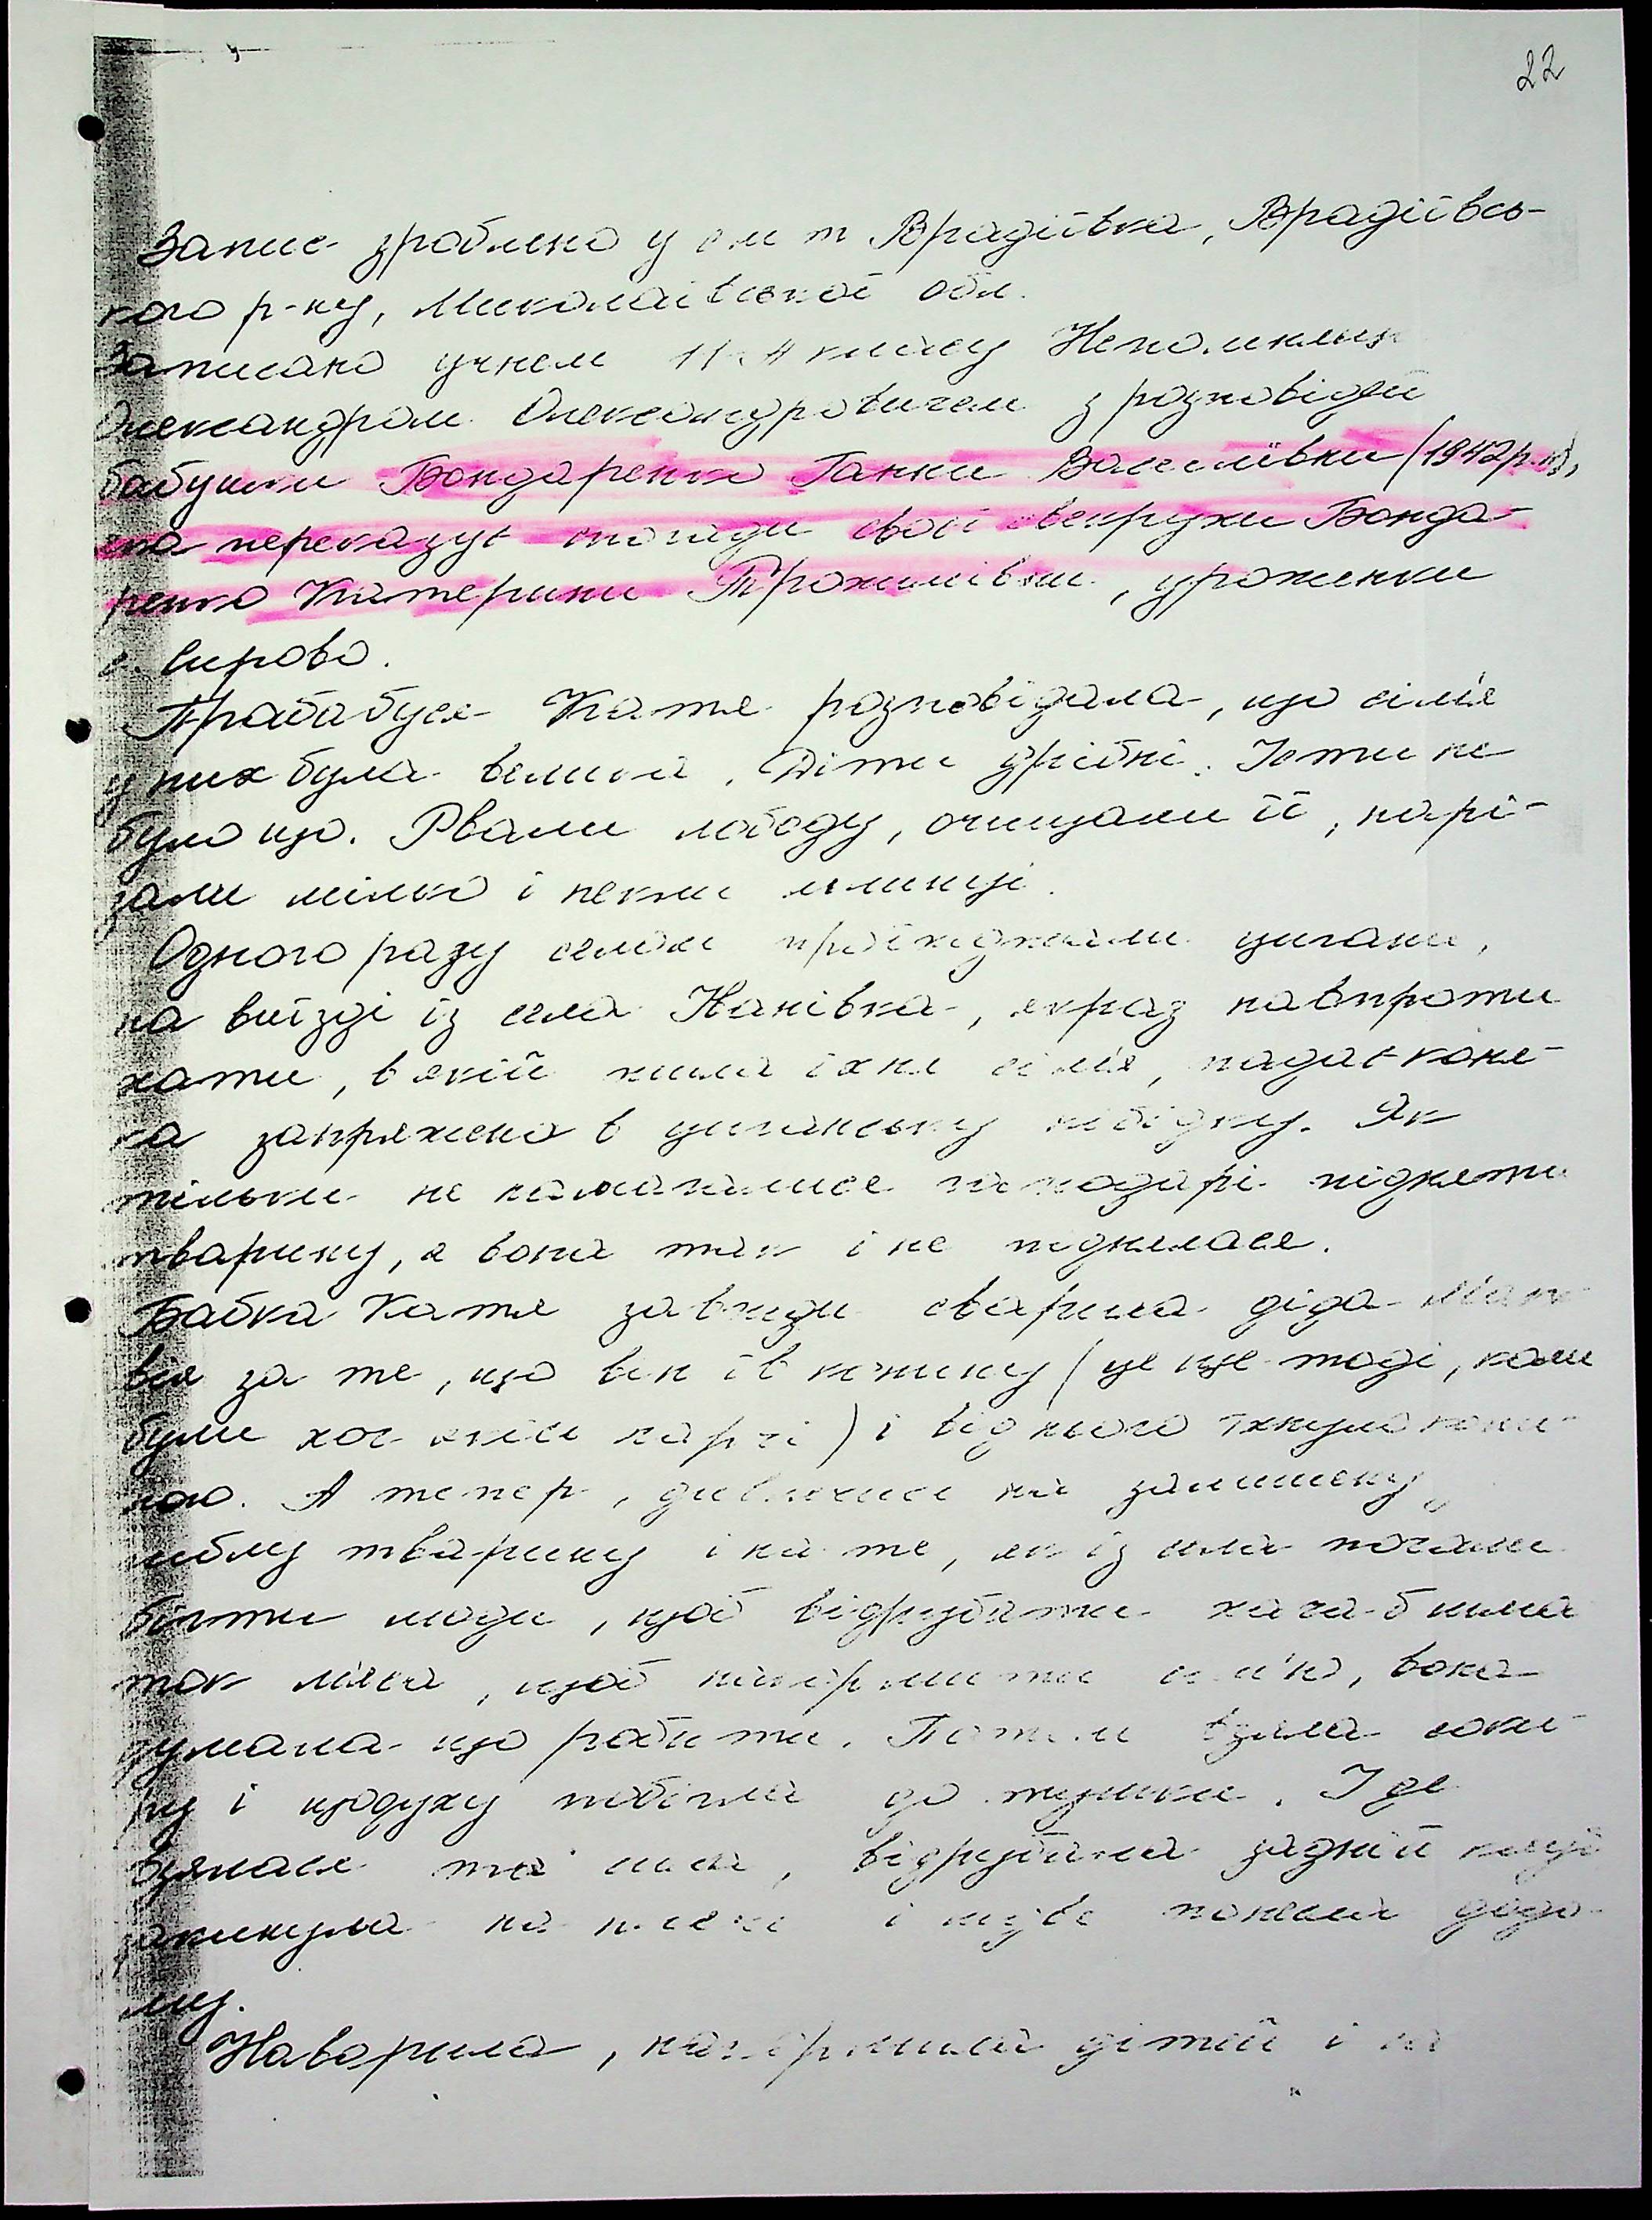 22
Запис зроблено у смт Врадіївка, Врадіївсь-
кого р-ну, Миколаївської обл.
Записано учнем 11-А класу
Олександром Олександровичем з розповідей
бабушки Бондаренко Ганни Василівни (1942р.н),
яка переказує спогади своєї свекрухи Бонда-
ренко Катерини Трохимівни, уроженки
с. Сирово.
Прабабуся Катя розповідала, що сім'я
у них була велика. Діти дрібні. Їсти не
було що. Рвали лободу, очищали її, нарі-
зали мілко і пекли млинці.
Одного разу селом проїжджали цигани,
на виїзді із села Канівка, якраз навпроти
хати, в якій жила їхня сім'я, падає коня-
ка запряжена в циганську підводу. Як
тільки не намагалися господарі підняти
тварину, а вона так і не піднялася.
Бабка Катя завжди сварила діда Мат-
вія за те, що він їв конину (це ще тоді, коли
були хоч якісь харчі) і від нього тхнуло кони-
ною. А тепер, дивлячись на залишену
здохлу тварину і на те, як із села почали
бігти люди, щоб відрубати хоча б шма
ток м'яса, щоб накормити сім'ю, вона
думала що робити. Потім взяла соки-
ру і щодуху побігла до тушки. І де
взялася та сила, відрубала задній
закинула на плечі і понесла додо-
му.
Наварила, накормила дітей і